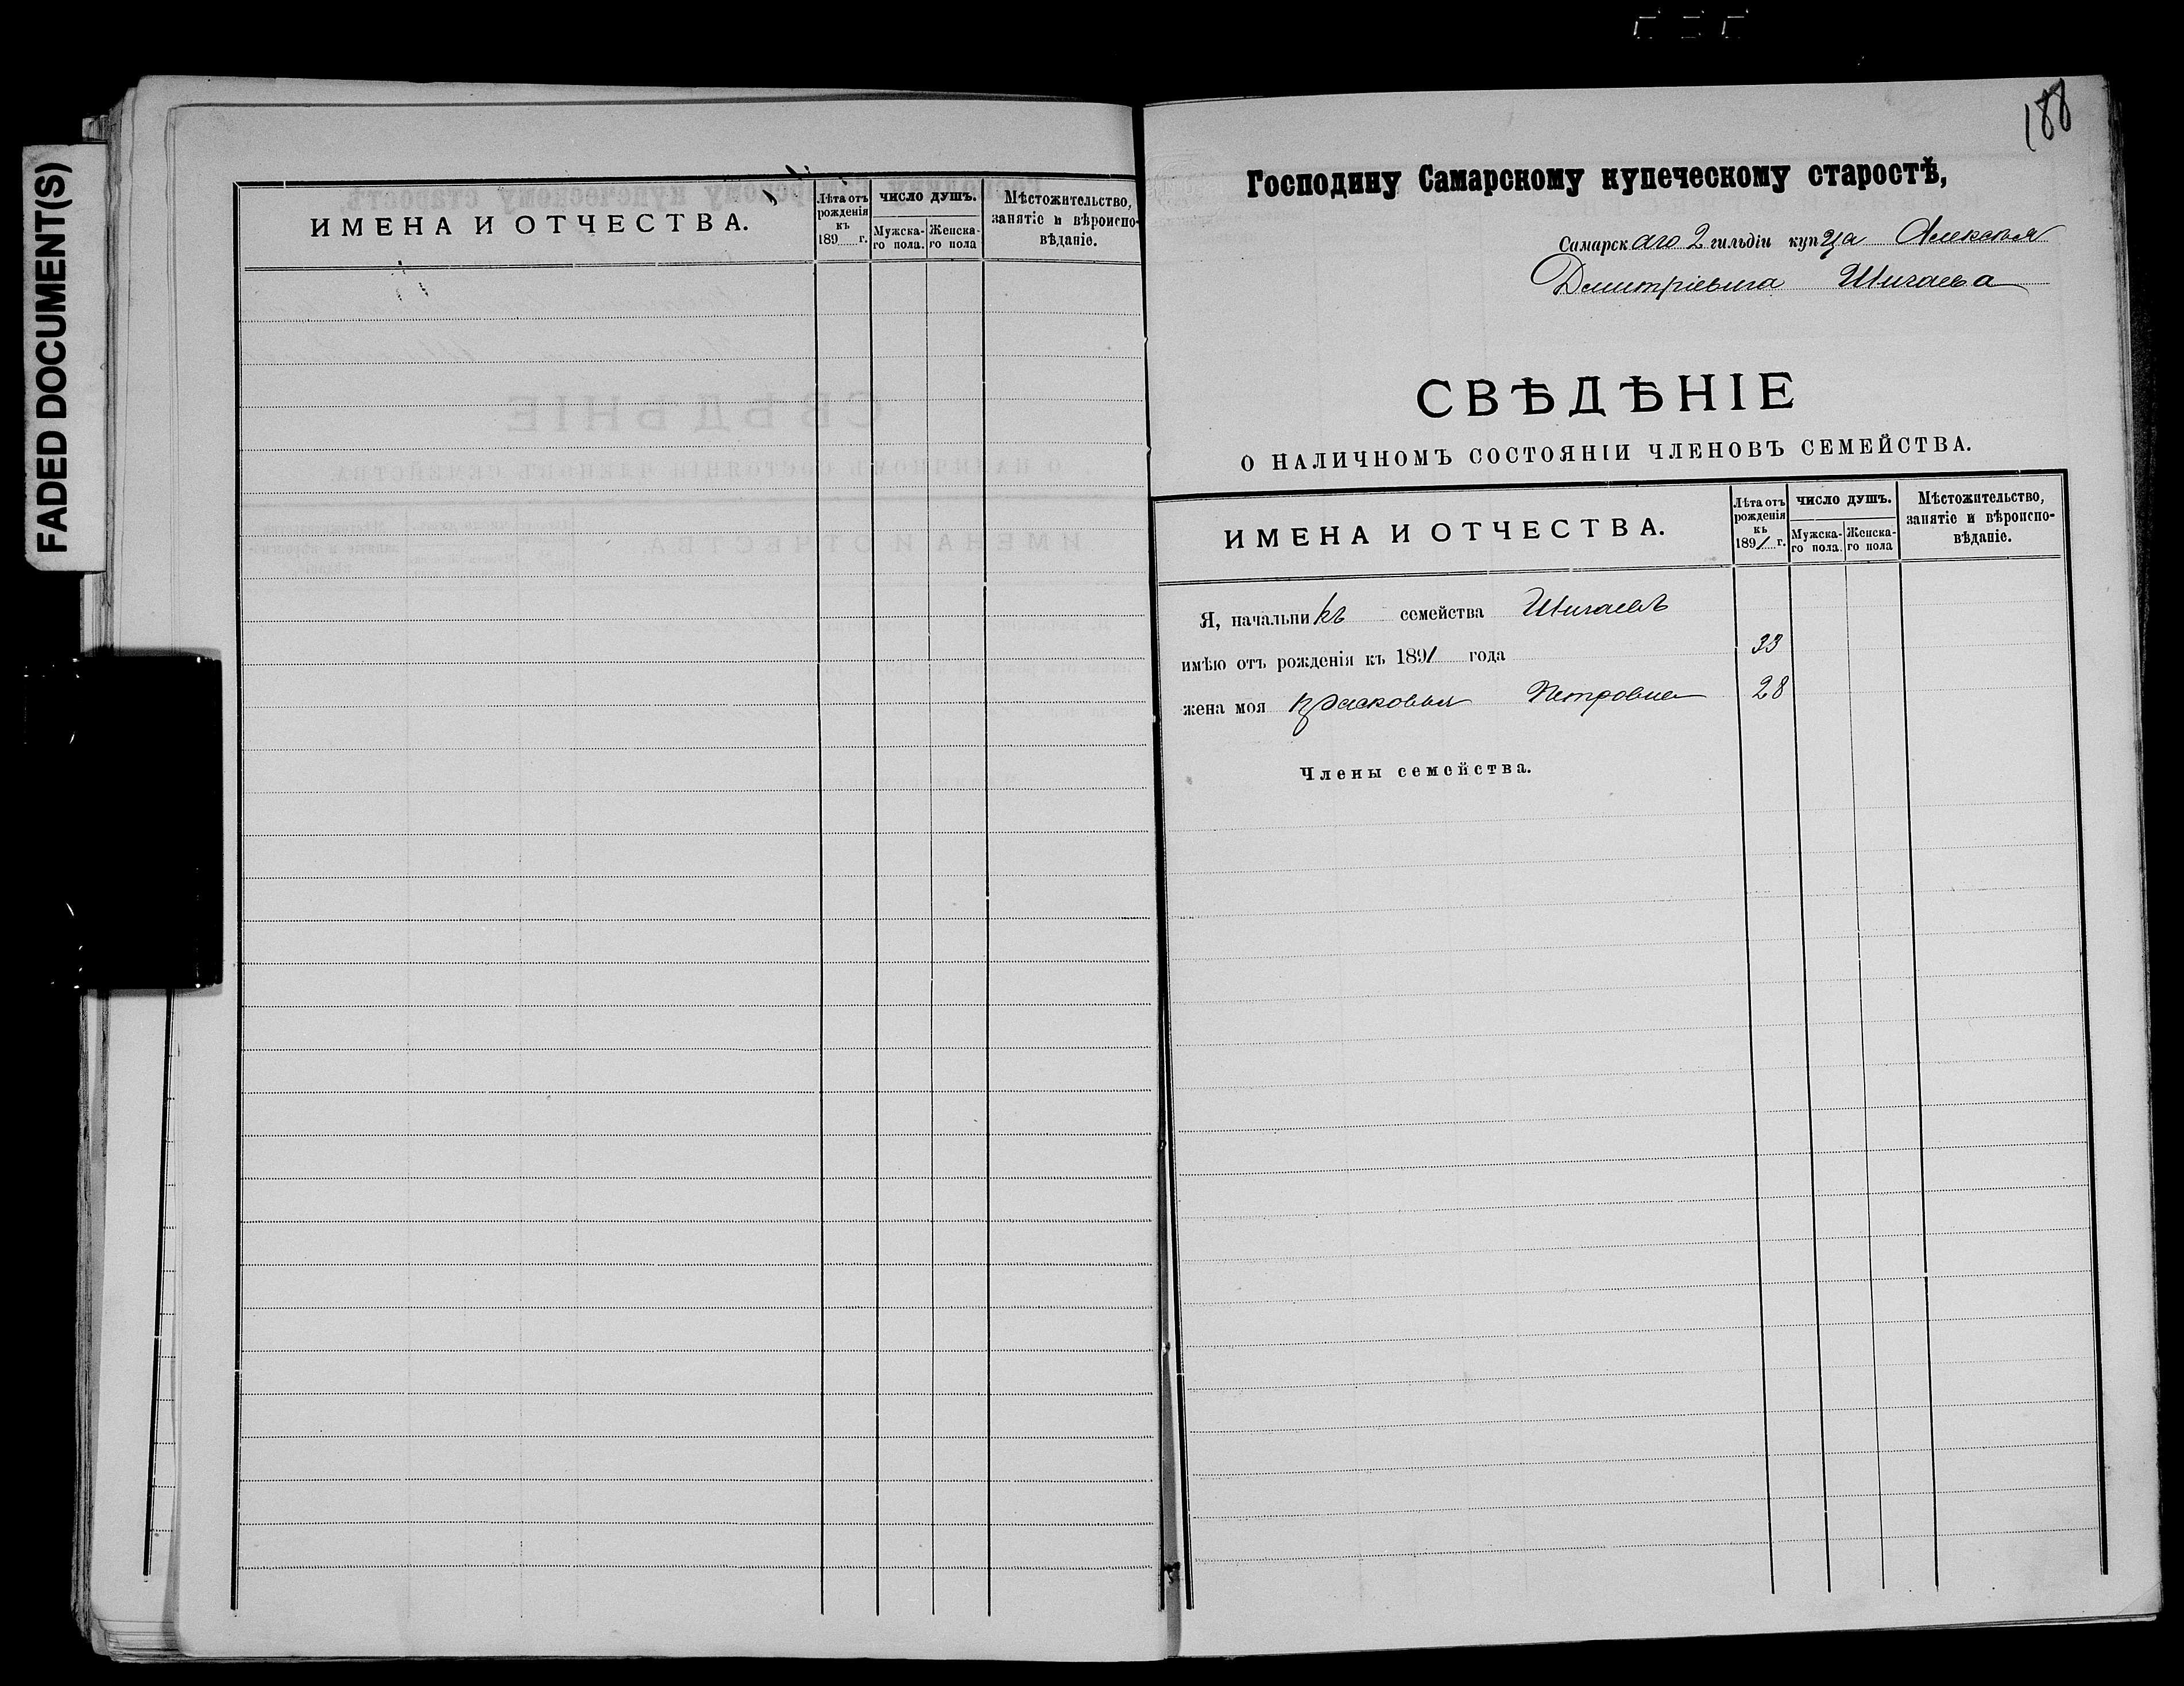 FADED DOCUMENT(S)
ИМЕНА И ОТЧЕСТВА.
Лѣта отъ рожденія къ 189 г.
ЧИСЛО ДУШЪ.
Мужска-го пола.
Женска-го пола
Мѣстожительство, занятіе и вѣроиспо-вѣданіе.
188
Господину Самарскому купеческому старостѣ,
Самарскаго 2 гильдіи купца Алексѣя
Дмитріевича Шигаева
СВѢДѢНІЕ
О НАЛИЧНОМЪ СОСТОЯНІИ ЧЛЕНОВЪ СЕМЕЙСТВА.
ИМЕНА И ОТЧЕСТВА.
Лѣта отъ рожденія къ 1891 г.
ЧИСЛО ДУШЪ.
Мужска-го пола.
Женска-го пола
Мѣстожительство, занятіе и вѣроиспо-вѣданіе.
Я, начальникъ семейства Шигаевъ
имѣю отъ рожденія къ 1891 года 33
жена моя Прасковья Петровна 28
Члены семейства.